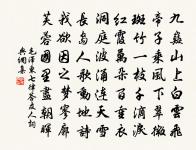 九嶷山上白雲飛
帝子乘風下翠微
斑竹一枝千滴淚
紅霞萬朵百重衣
洞庭波湧連天雪
長島人歌動地詩
我欲因之夢寥廓
芙蓉國里盡朝暉
毛澤東七律答友人詞